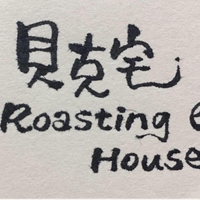 貝克宅
Roasting
House